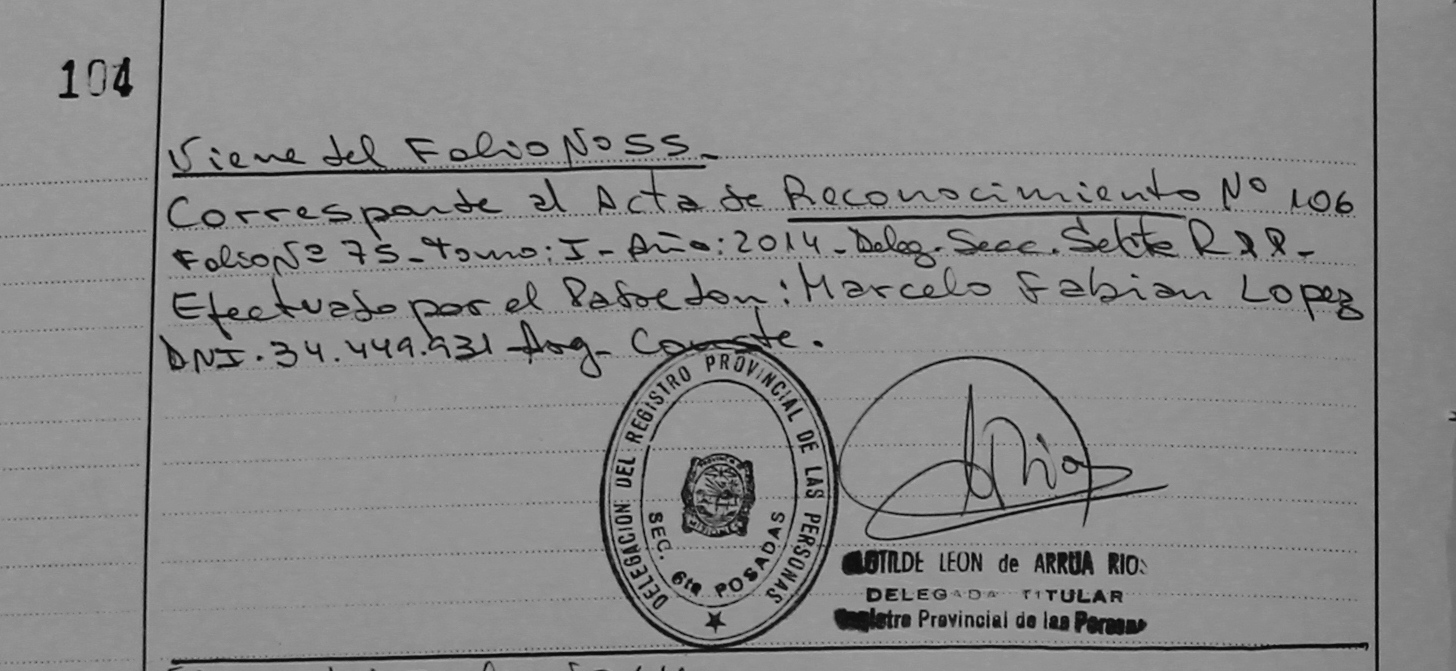 104
Viene del Folio Nº 55.-
Corresponde al Acta de Reconocimiento Nº 106
Folio Nº 75- Tomo: I- Año: 2014- Deleg. Secc.
Efectuado por el : Marcelo Fabian Lopez
DNI. 34.449.931 Arg- Conste.
DELEGACION DEL REGISTRO PROVINCIAL DE LAS PERSONAS
SEC. 6ta POSADAS
LEON de ARRUA
DELEGADA TITULAR
Provincial de las